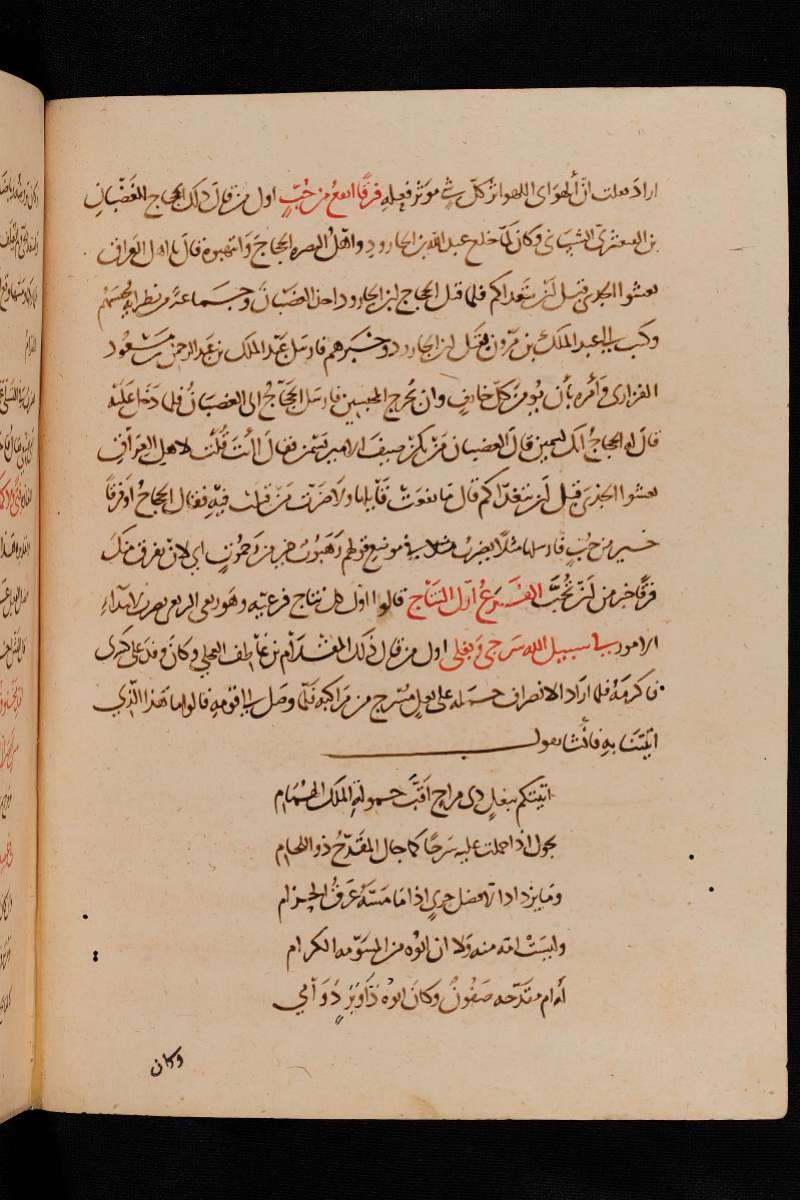 اراد فعلت انّ الهوى الى الهوان كلّ شئ موثر فعله فرقًا انفع من حُبّ اول من قال ذلك الحجاج الغضبان
بن القبعثرى الشيبانى وكان لمّا خلع عبد الله بن الجارود واهل البصره الحجاج وانتهبوه قال يا اهل العراق
تعشّوا الجدى قبل ان يتغداكم فلما قتل الحجاج ابن الجارود اخذ الغضبان وجماعة من نظرايه فحبسهم
وكتب الى عبد الملك بن مرون بقتل ابن الجارود وخبرهم فارسل عبد الملك بن عبد الرحمن مسعود
الفزارى وأمره بأن يومن كلّ خايف وان يخرج المحبسين فارسل الحجاج الى الغضبان فلما دخل عليه
قال له الحجاج انك لسمين قال الغضبان من يكن ضيف الامير يسمن فقال اانت قلت لاهل العراق
تعشوا الجدى قبل ان يتغداكم قال ما نفعت قايلها ولا ضرّت من قيلت فيه فقال الحجاج اوفرقاً
خير من حب فارسلها مثلاً يضرب مثلا فى موضع قولهم رهبوت خير من رحموت اى لان يفرق منك
فرقًا خير من ان تُحَبّ الفرع اول النتاج قالوا اول كل نتاج فرعه وهو ربعى الربعى يضرب لابتداء
الامور فى سبيل الله سرجى وبغلى اول من قال ذلك المقدام بن عاطف العجلى وكان وفد على كسرى
فاكرمه فلما اراد الانصراف حمله على بغل مُسرج من مراكبه فلمّا وصل الى قومه قالوا ما هذا الذي
اتيتنا به فانشا يقول
اتيتكم ببغل ذى مراح اقبّ حمولة الملك الهمام
يجول اذا حملت عليه سرجًا كما جال المقدح ذو اللجام
وما يزداد الا فضل جرى اذا ما مسّه عرق الحزام
وليست امه منه ولا ان ابوه من المسومه الكرام
له ام مقدحه صفون وكان ابوه ذا وبر دوامى
وكان